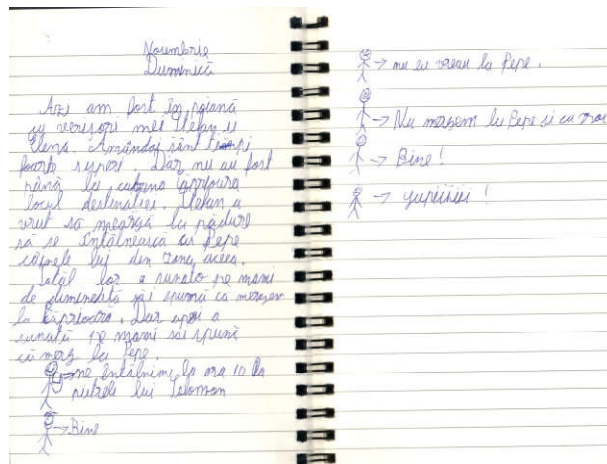 Noiembrie
Duminică
Azi am fost în poiană
cu verișori mei Ștefan și
Elena. Amândoi sânt
foarte superi. Dar nu au fost
până la cabana Căprioara
locul destinatiei. Ștefan a
vrut să meargă la pădure
să se întâlnească cu Pepe
câinele lui din zona aceea.
Tatăl lor a sunato pe mami
de dimineață săi spună ca mergem
la Căprioara. Dar apoi a
sunată pe mami săi spună
că merg la Pepe.
→ ne întâlnim la ora 10 la
pietrele lui Solomon
→ Bine
→ nu eu vreau la Pepe.
→ Nu mergem la Pepe si cu
→ Bine!
→ yupiiiiii!